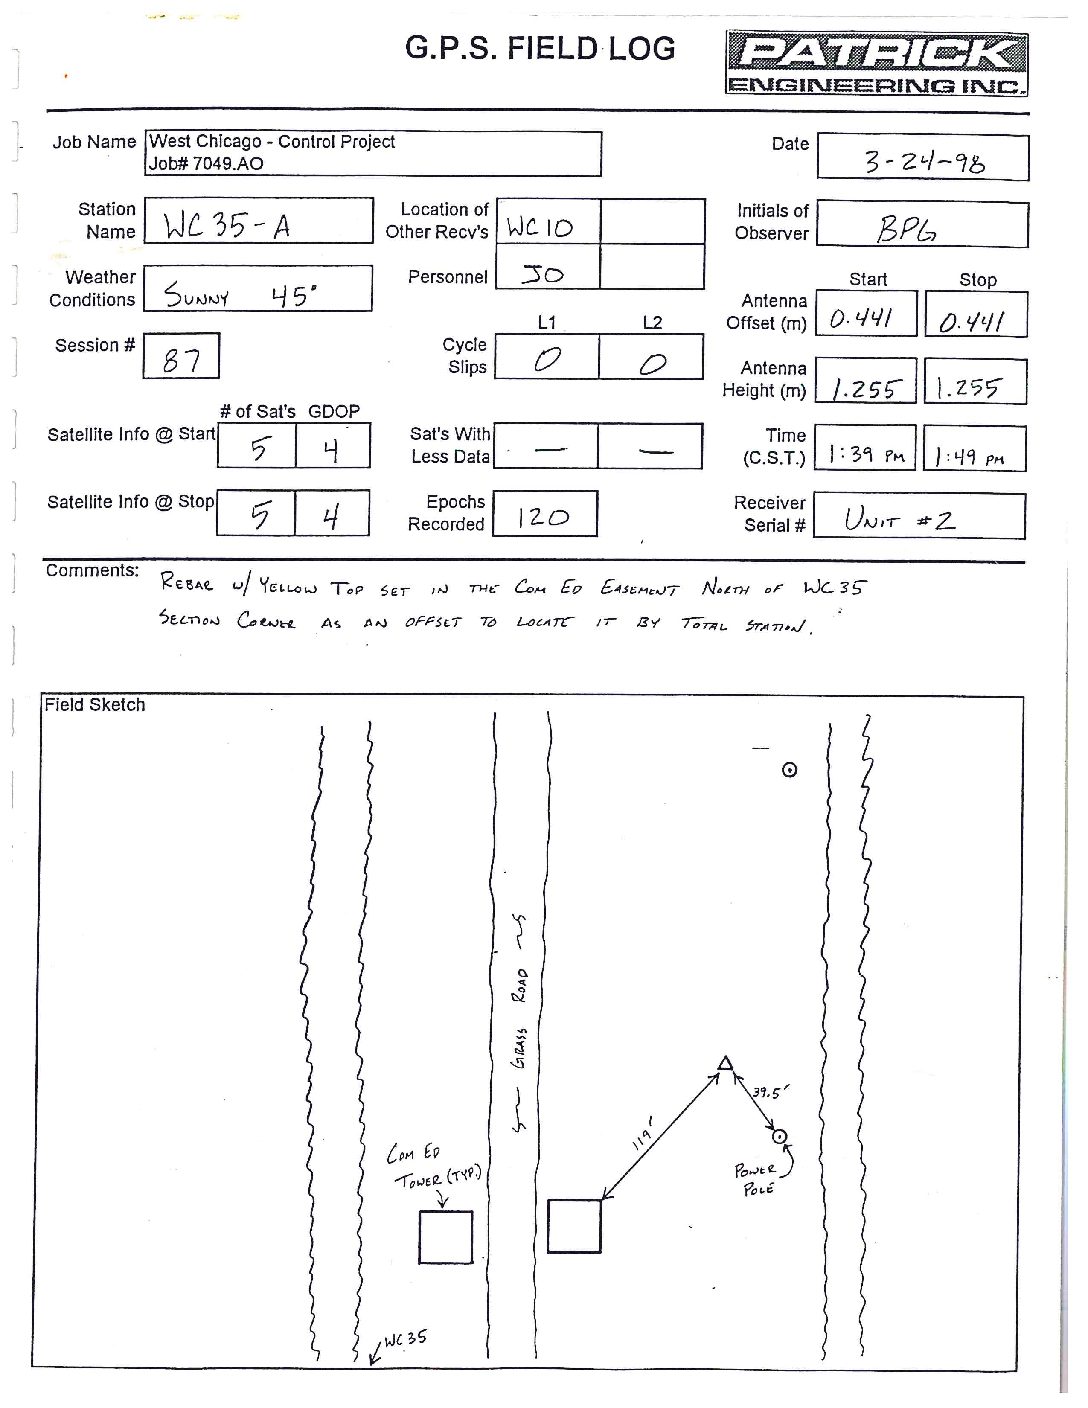 G.P.S. FIELD LOG
PATRICK
ENGINEERING INC.
Job Name West Chicago - Control Project
Job# 7049.AO
Date 3-24-98
Station Name WC 35-A
Location of Other Recv's WC 10
Initials of Observer BPG
Weather Conditions SUNNY 45°
Personnel JO
Start Stop
Antenna Offset (m) 0.441 0.441
Session # 87
L1 L2
Cycle Slips 0 0
Antenna Height (m) 1.255 1.255
# of Sat's GDOP
Satellite Info @ Start 5 4
Sat's With Less Data — —
Time (C.S.T.) 1:39 PM 1:49 PM
Satellite Info @ Stop 5 4
Epochs Recorded 120
Receiver Serial # UNIT #2
Comments: REBAR W/ YELLOW TOP SET IN THE COM ED EASEMENT NORTH OF WC 35
SECTION CORNER AS AN OFFSET TO LOCATE IT BY TOTAL STATION.
Field Sketch
GRASS ROAD
39.5'
119'
COM ED
TOWER (TYP.)
POWER
POLE
WC 35